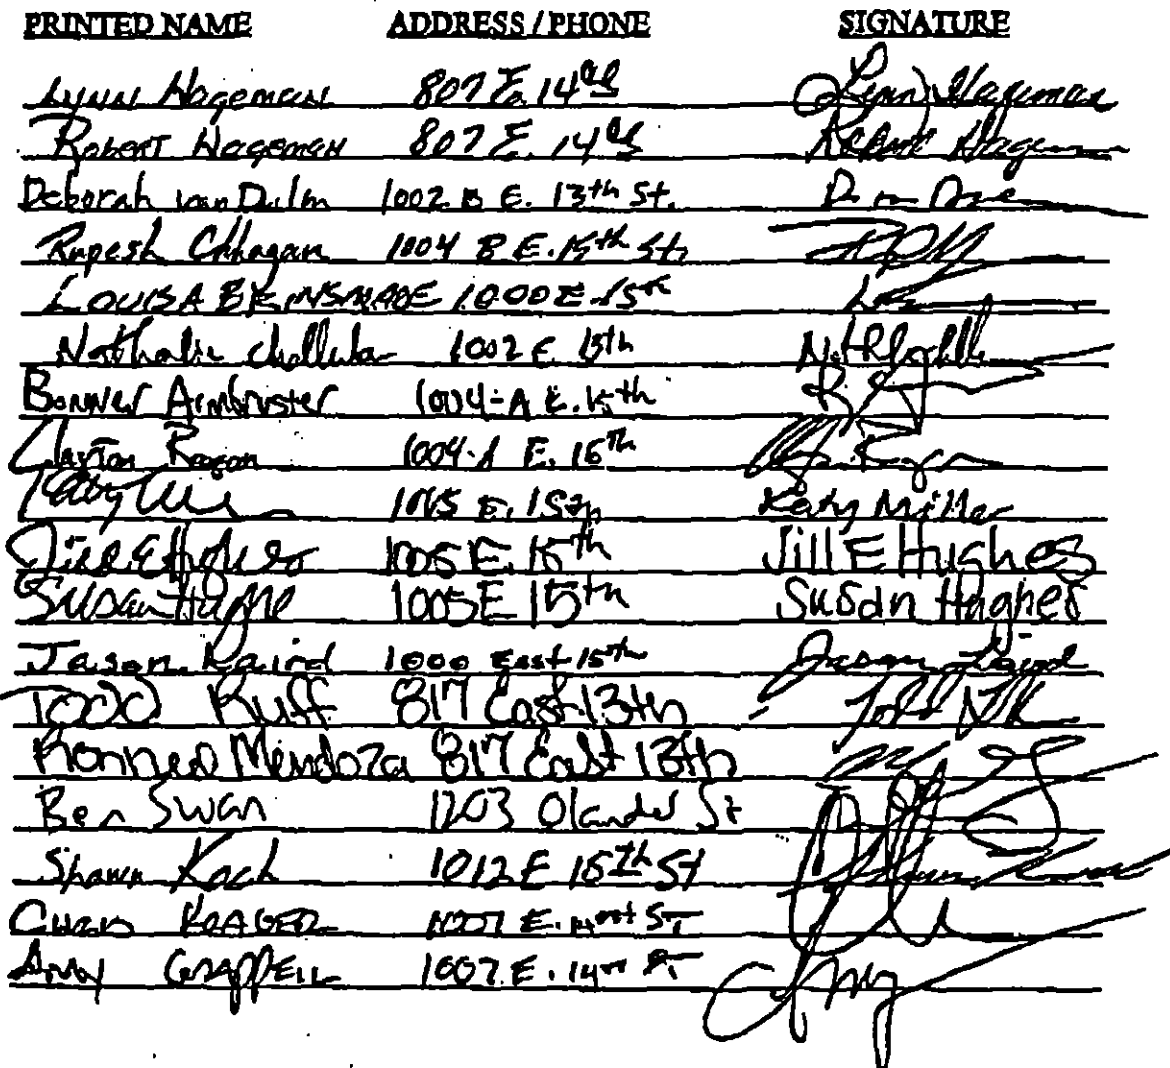 PRINTED NAME ADDRESS / PHONE SIGNATURE
Lynn Hageman 807 E. 14th Lynn Hageman
Robert Hageman 807 E. 14th Robert Hageman
Deborah van Dulm 1002 B E. 13th St.
Rupesh Chhagan 1004 B E. 15th St.
LOUISA BRINSMADE 1000 E 15th
Nathalie 1002 E. 15th
Bonner Armbruster 1004-A E. 15th
Clayton 1004-A E. 15th
E. 15th Katy Miller
Jill E Hughes 1005 E. 15th Jill E Hughes
Susan Hughes 1005 E 15th Susan Hughes
Jason 1000 East 15th Jason
Todd Ruff 817 East 13th
Mendoza 817 East 13th
Ben Swan 1203 Olander St
Shawn Koch 1012 E 15th St
E. 14th ST
Amy GRAPPELL 1007 E. 14th ST Amy